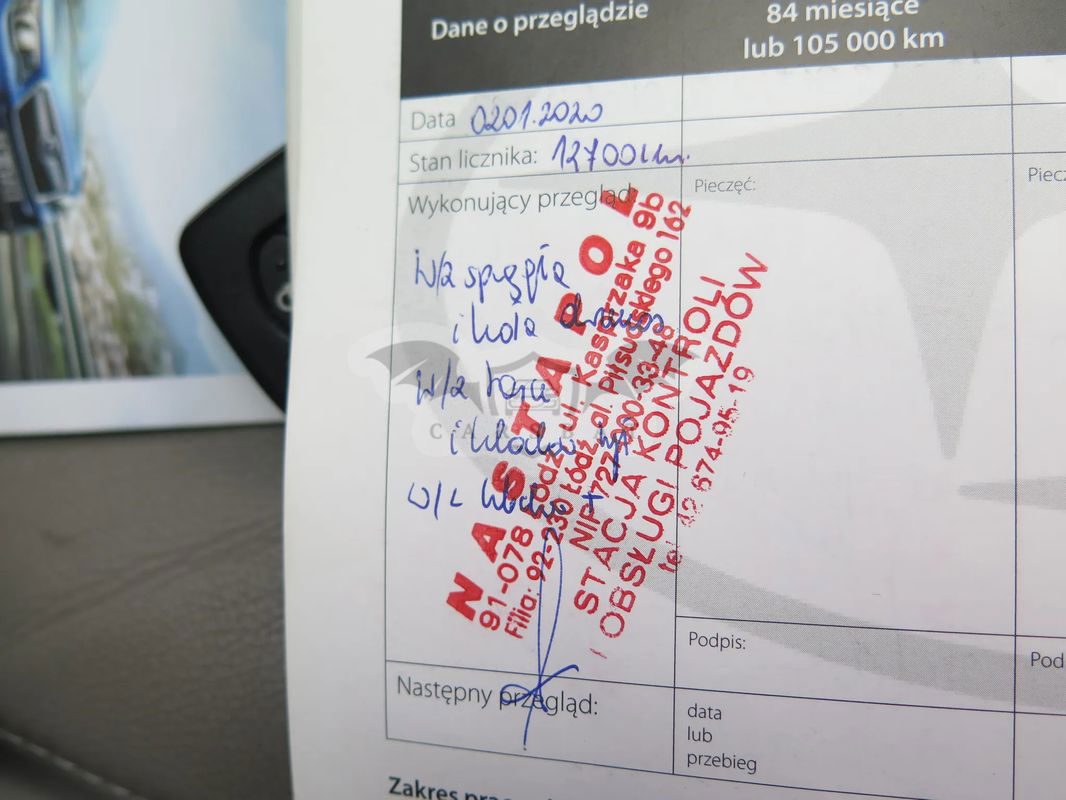 Dane o przeglądzie
84 miesiące
lub 105 000 km
Data 02.01.2020
Stan licznika: 127001km.
Wykonujący przegląd:
Pieczęć:
Piecz
w/z sprzęgła
i koła
w/z
i klocków
w/z
NASTAROL
91-078 Łódź ul. Kasprzaka 9b
Filia: 92-230 Łódź, al. Piłsudskiego 162
NIP 727-000-33-48
STACJA KONTROLI
I OBSŁUGI POJAZDÓW
tel. 42 674-95-19
Podpis:
Pod
Następny przegląd:
data
lub
przebieg
Zakres